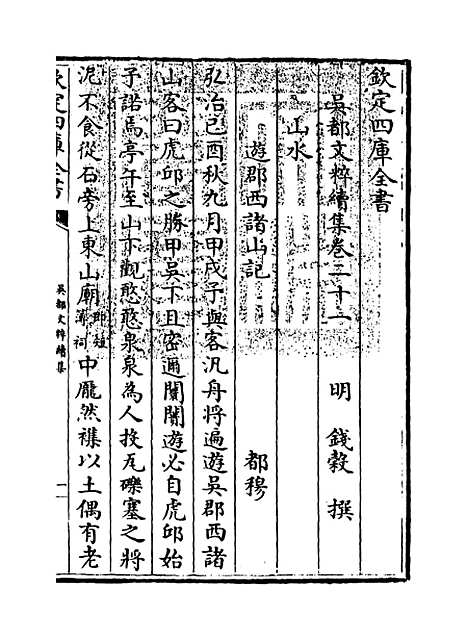 欽定四庫全書
吳都文粹續集卷二十一
明 錢穀 撰
山水
遊郡西諸山記 都穆
弘治己酉秋九月甲戌予與客汎舟將遍遊吳郡西諸
山客曰虎邱之勝甲吳下且密邇闤闠遊必自虎邱始
予諾焉亭午至山下觀憨憨泉泉為人投瓦礫塞之將
泥不食從石旁上東山廟即短簿祠中龎然襍以土偶有老
欽定四庫全書
吳都文粹續集
一